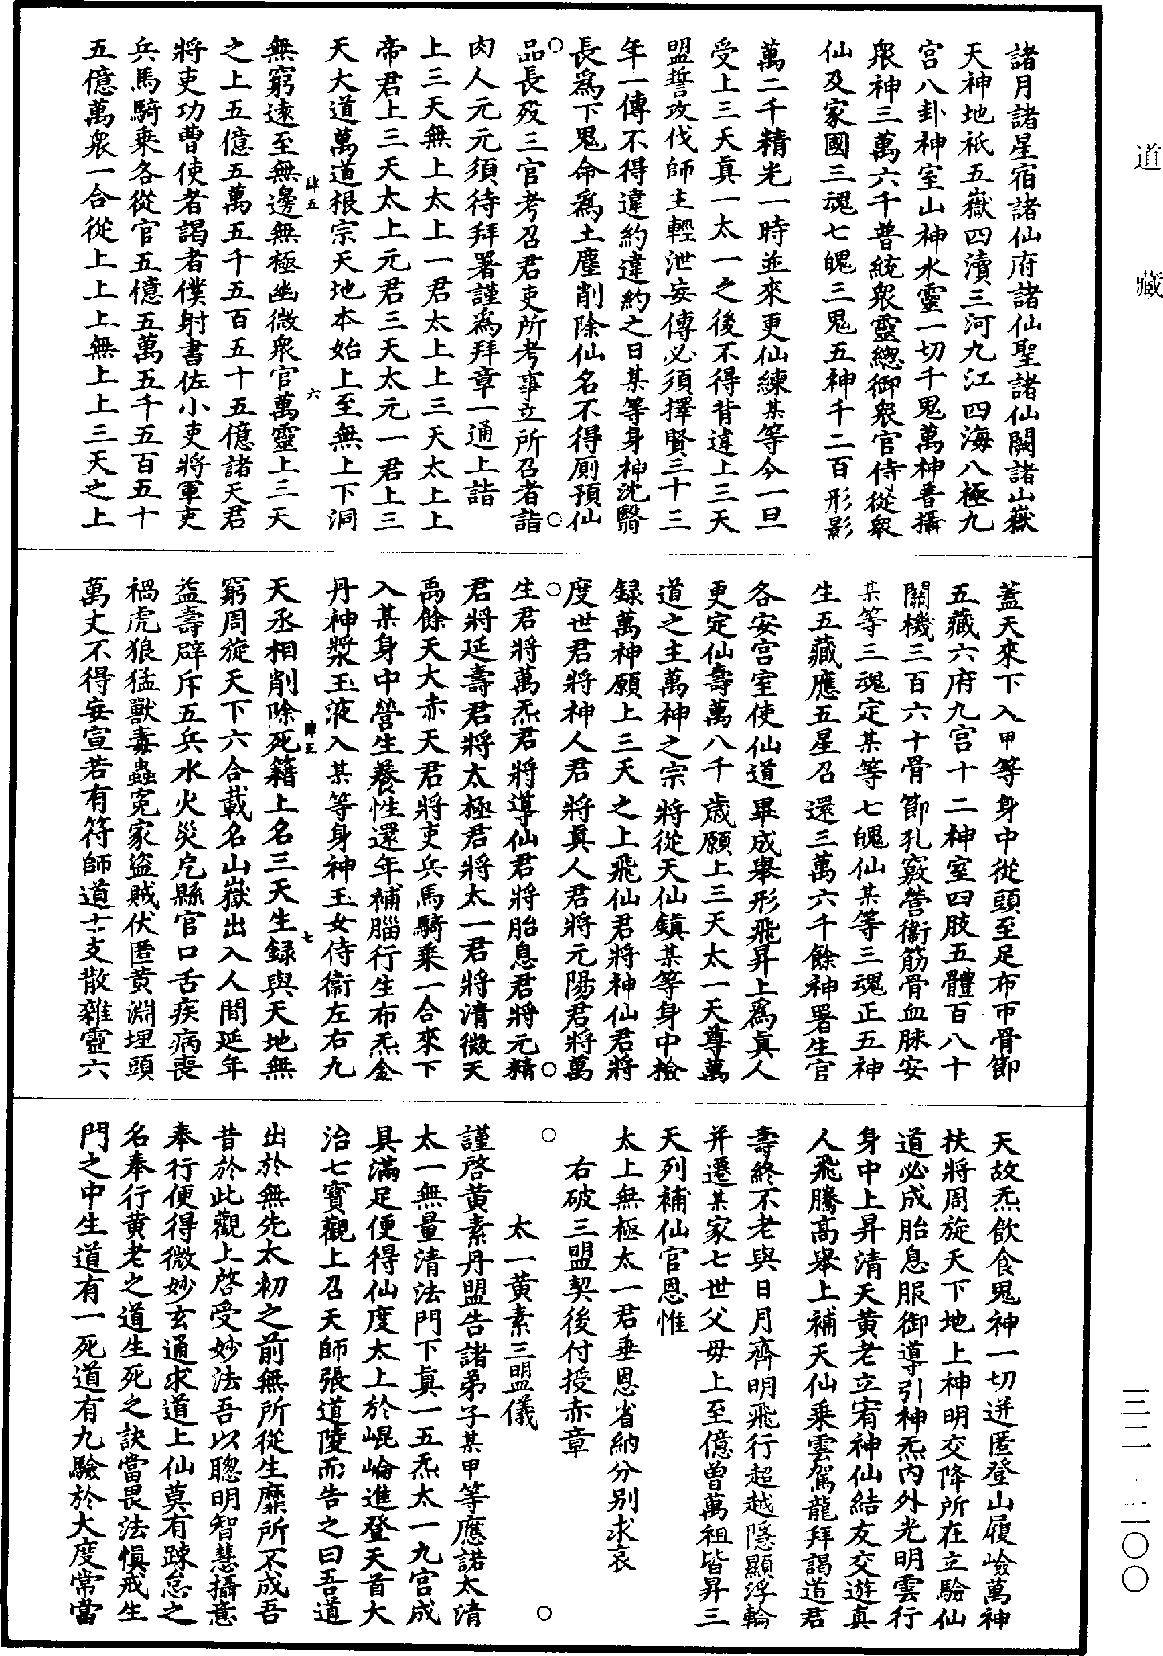 諸月諸星宿諸仙府諸仙聖諸仙闕諸山嶽
天神地祇五嶽四瀆三河九江四海八極九
宮八卦神室山神水靈一切千鬼萬神普攝
衆神三萬六千普統衆靈總御衆官侍從衆
仙及家國三魂七魄三鬼五神千二百形影
萬二千精光一時並來更仙練某等今一旦
受上三天真一太一之後不得背違上三天
盟誓攻伐師主輕泄妄傳必須擇賢三十三
年一傳不得違約違約之日某等身神沈翳
長爲下鬼命爲土塵削除仙名不得廁預仙
品長歿三官考召君吏所考事立所召者詣
肉人元元須待拜署謹爲拜章一通上詣
上三天無上太上一君太上上三天太上上
帝君上三天太上元君三天太元一君上三
天大道萬道根宗天地本始上至無上下洞
無窮遠至無邊無極幽微衆官萬靈上三天
之上五億五萬五千五百五十五億諸天君
將吏功曹使者謁者僕射書佐小吏將軍吏
兵馬騎乘各從官五億五萬五千五百五十
五億萬衆一合從上上上無上上三天之上
肆五
六
蓋天來下入甲等身中從頭至足布帀骨節
五藏六府九宮十二神室四肢五體百八十
關機三百六十骨節孔竅營衛筋骨血脉安
某等三魂定某等七魄仙某等三魂正五神
生五藏應五星召還三萬六千餘神署生官
各安宮室使仙道畢成舉形飛昇上爲真人
更定仙壽萬八千歲願上三天太一天尊萬
道之主萬神之宗將從天仙鎮某等身中撿
録萬神願上三天之上飛仙君將神仙君將
度世君將神人君將真人君將元陽君將萬
生君將萬炁君將導仙君將胎息君將元精
君將延壽君將太極君將太一君將清微天
禹餘天大赤天君將吏兵馬騎乘一合來下
入某身中營生養性還年補腦行生布炁金
丹神漿玉液入某等身神玉女侍衛左右九
天丞相削除死籍上名三天生録與天地無
窮周旋天下六合載名山嶽出入人間延年
益壽辟斥五兵水火災厄縣官口舌疾病喪
禍虎狼猛獸毒蟲冤家盜賊伏匿黃淵埋頭
萬丈不得妄宣若有符師道士支散雜靈六
肆五
七
天故炁飲食鬼神一切迸匿登山履嶮萬神
扶將周旋天下地上神明交降所在立驗仙
道必成胎息服御導引神炁內外光明雲行
身中上昇清天黃老立宥神仙結友交遊真
人飛騰高舉上補天仙乘雲駕龍拜謁道君
壽終不老與日月齊明飛行超越隱顯浮輪
并遷某家七世父母上至億曾萬祖皆昇三
天列補仙官恩惟
太上無極太一君垂恩省納分別求哀
右破三盟契後付授赤章
太一黃素三盟儀
謹啓黃素丹盟告諸弟子某甲等應諾太清
太一無量清法門下真一五炁太一九宮成
具滿足便得仙度太上於崐崙進登天首大
治七寶觀上召天師張道陵而告之曰吾道
出於無先太初之前無所從生靡所不成吾
昔於此觀上啓受妙法吾以聰明智慧攝意
奉行便得微妙玄通求道上仙莫有踈怠之
名奉行黃老之道生死之訣當畏法愼戒生
門之中生道有一死道有九驗於大度常當
道藏
三二·二〇〇